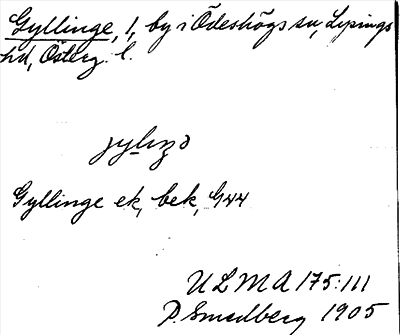 Gyllinge, 1, by i Ödeshögs sn, Lysings
hd, Österg. l.
Gyllinge ek, bek, G44
ULMA 175:111
P. Smedberg 1905